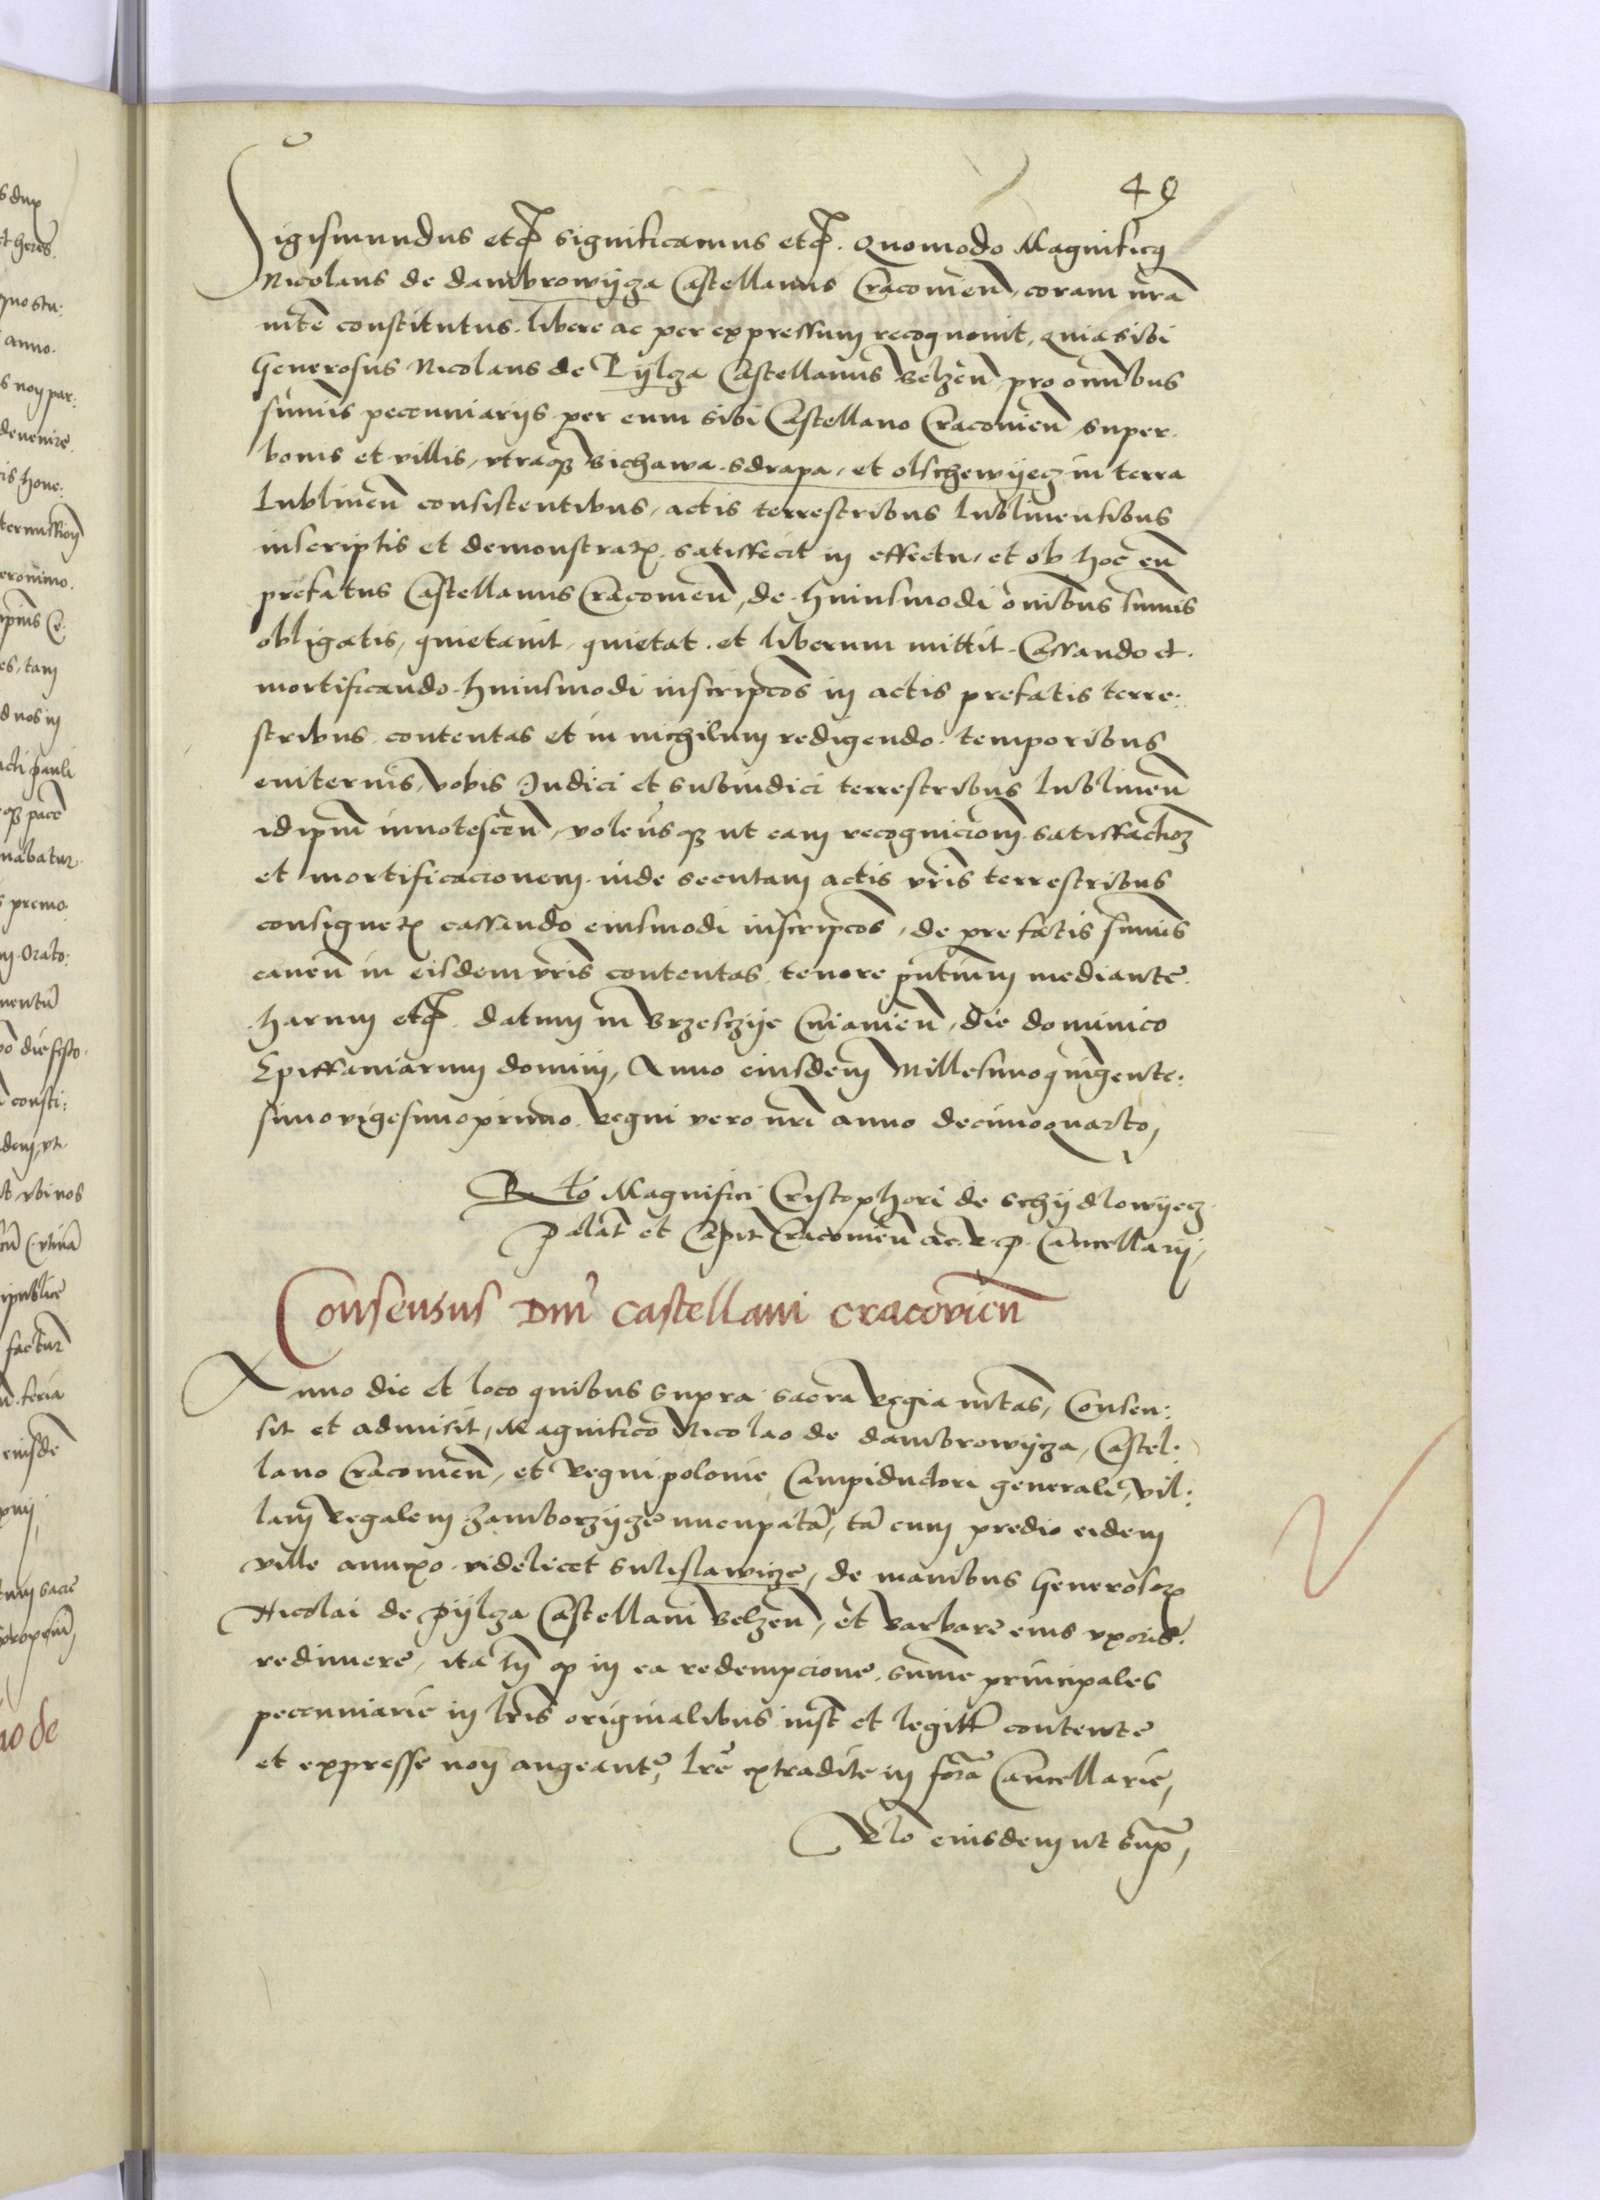 49
Sigismundus etc̄ significamus etc̄. Quomodo Magnificꝰ
Nicolaus de dambrowijcza Castellanus Cracouien̄, coram nr̄a
mt̄e constitutus. libere ac per expressum recognouit, quia sibi
Generosus Nicolaus de Pijlcza Castellanus Belzen̄ pro om̄ibus
sum̄is peccuniarijs per eum sibi Castellano Cracouien̄ super.
bonis et villis, vtraqꝫ Bichawa. Sdrapa, et olschewijecz in terra
Lublinen̄ consistentibus, actis terrestribus Lublinensibus
inscriptis et demonstratꝝ. satisfecit in effectu, et ob hoc eū
prefatus Castellanus Cracouien̄, de huiusmodi om̄ibus sum̄is
obligatis, quietauit, quietat. et liberum mittit. Cassando et.
mortificando. huiusmodi inscripcōes in actis prefatis terre:
stribus. contentas et in nichilum redigendo. temporibus
euiternis, vobis Iudici et subiudici terrestribus Lublinen̄
id ipm̄ innotescen̄, volen̄sqꝫ ut eam recognicionem. satisfactiōeꝫ
et mortificacionem. inde secutam actis vr̄is terrestribus
consignetꝝ cassando eiusmodi inscripcōes, de prefatis sum̄is
cauen̄ in eisdem vr̄is contentas. tenore pn̄tium mediante.
harum etc̄. datum in Brzesczije Cuiauien̄, die dominico
Epiffaniarum domini, Anno eiusdem Millesimoquingente:
simovigesimoprimo. Regni vero nr̄i anno decimoquarto,
R̄lō Magnifici Cristophori de Schijdlowijecz
Palat̄ et Capit̄ Cracouien̄ ac. R. P. Cancellarij,
Consensus Dn̄i Castellani Cracovien̄
Anno die et loco quibus supra sacra Regia mt̄as, Consen:
sit et admisit, Magnifico Nicolao de dambrowijcza, Castel:
lano Cracouien̄, et Regni polonie Campiductori generali, vil:
lam Regalem Zamborzijcze nuncupatā, tā cum predio eidem
ville annexo. videlicet Sulislawicze, de manibus Generosoꝝ
Nicolai de Pijlcza Castellani Belzen̄, et Barbare eius vxoris.
redimere, ita tn̄ ꝙ in ea redempcione. sum̄e principales
peccuniarie in lr̄is originalibus iust̄ et legitt̄ contente
et expresse non augeantꝛ, lr̄e extradite in forā Cancellarie,
R̄lō eiusdem ut supꝛ,